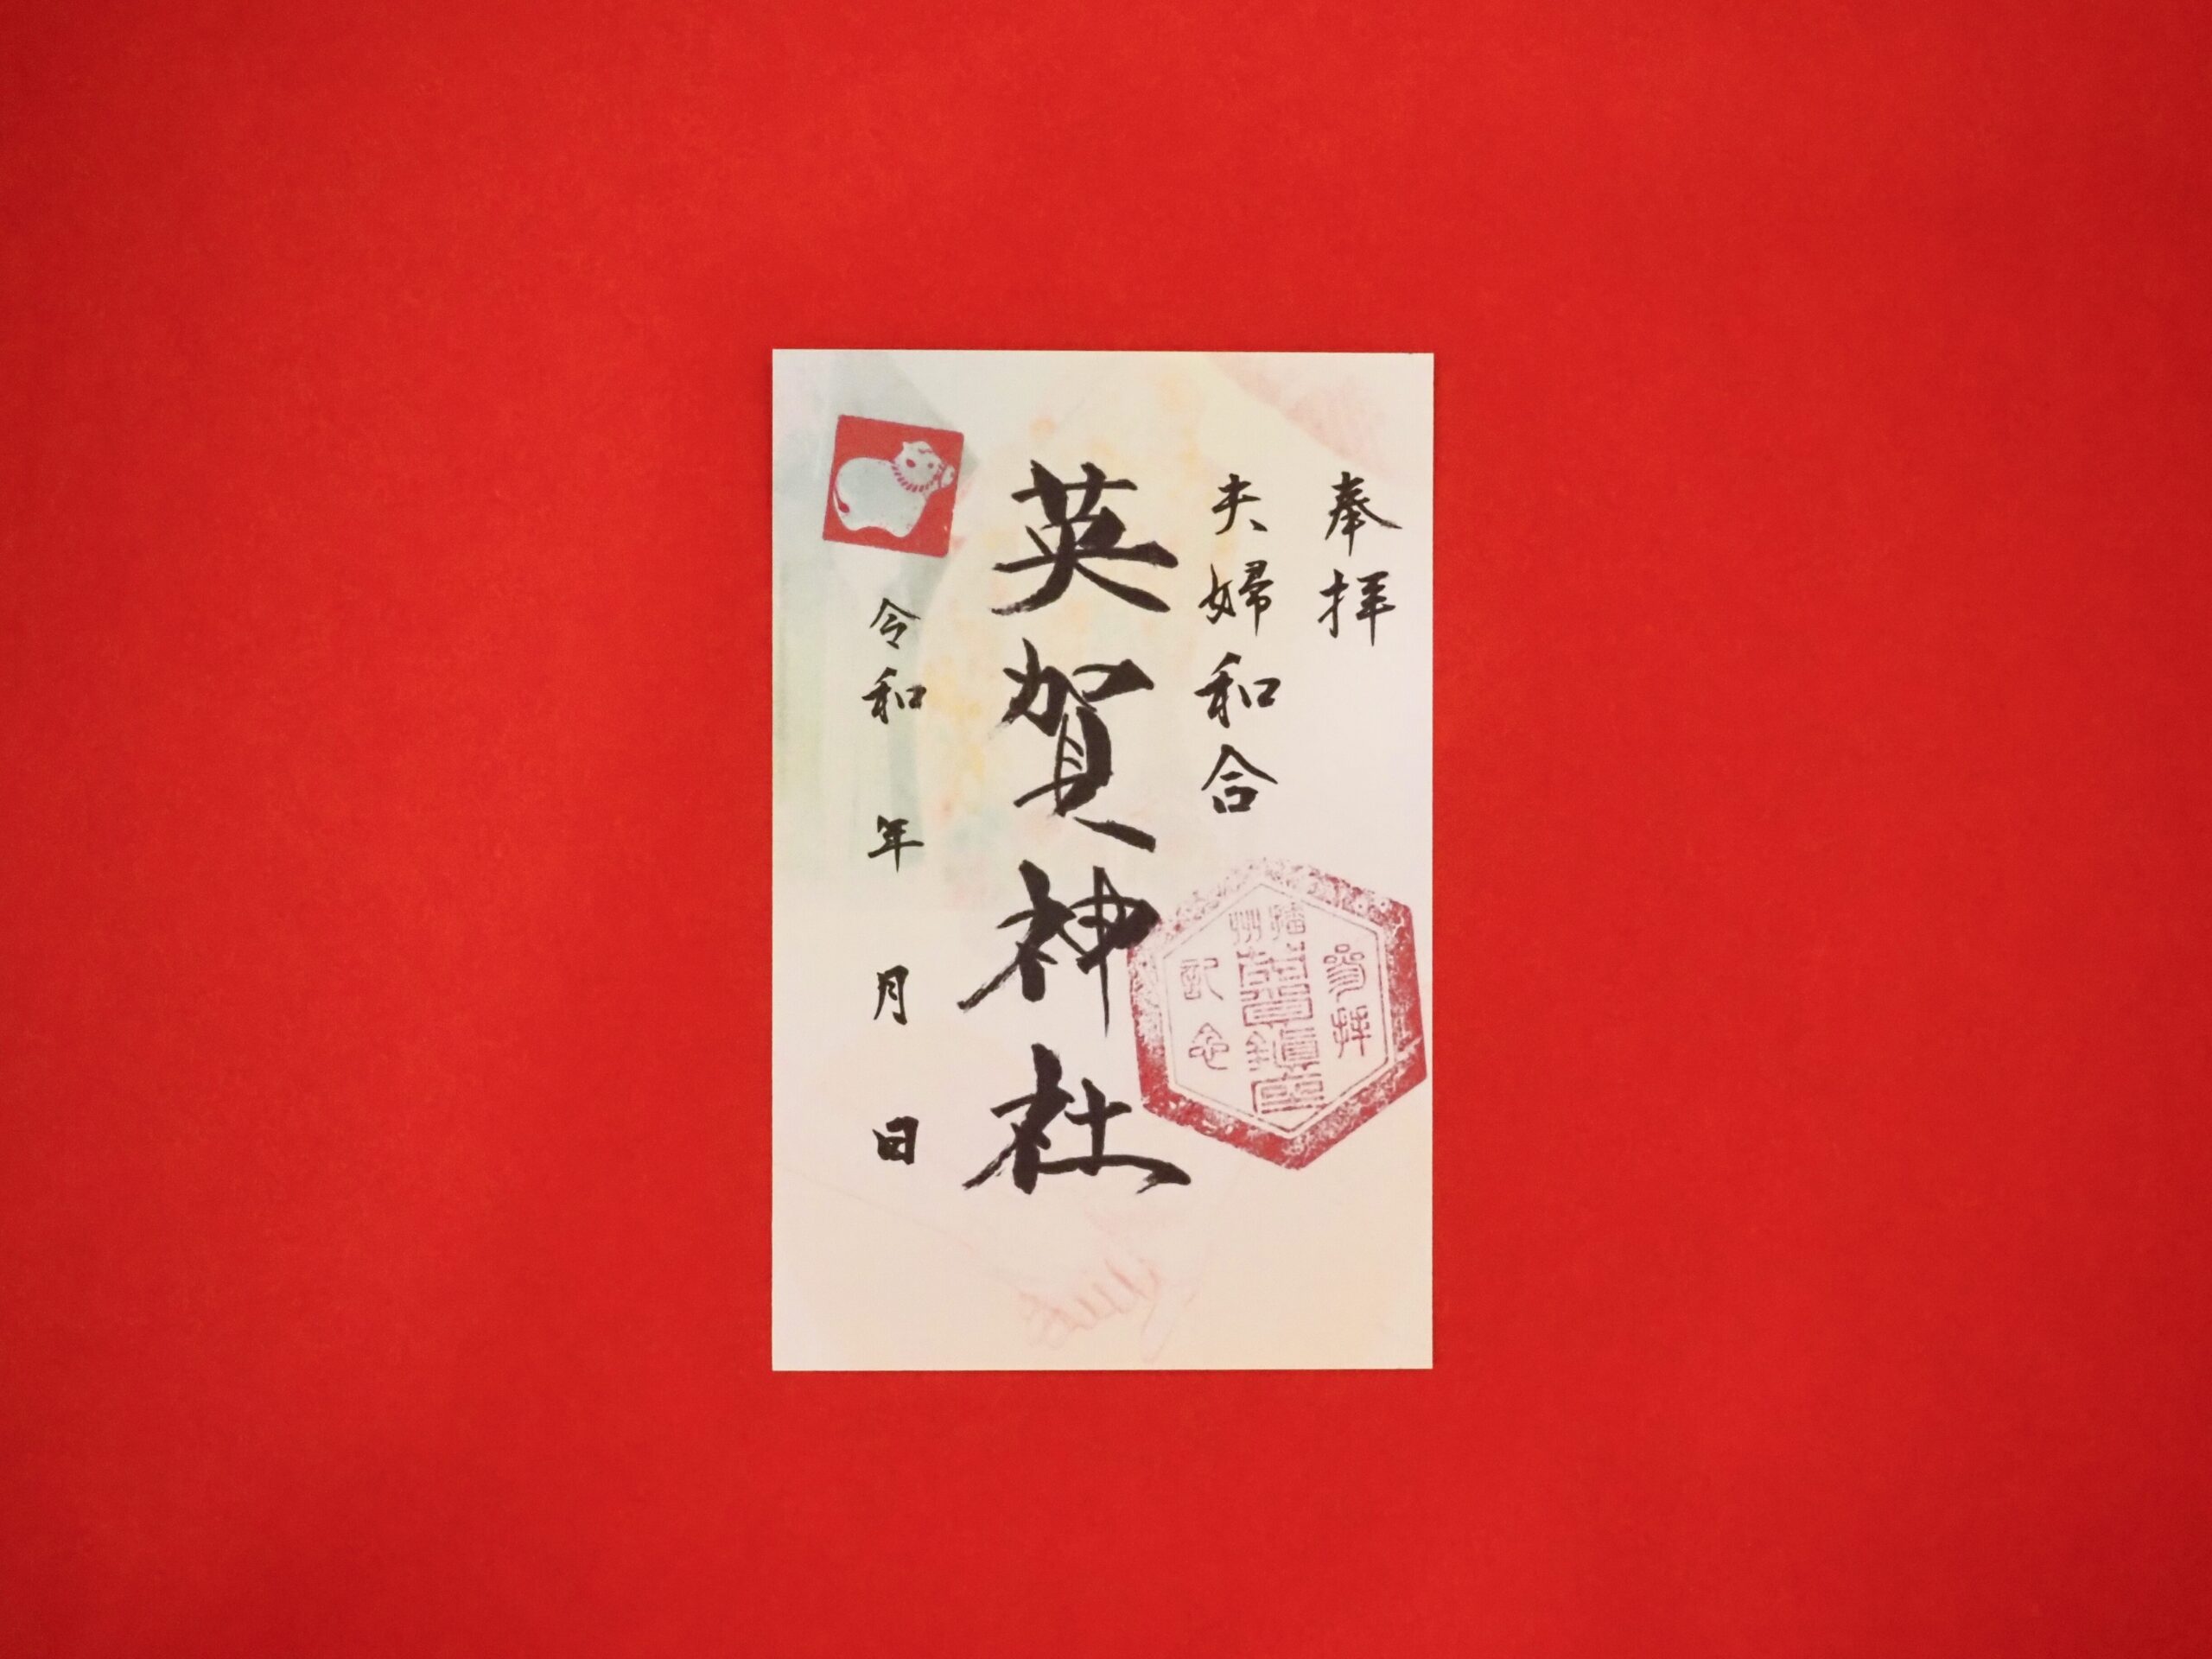 奉拝
夫婦和合
英賀神社
令和 年 月 日
参拝
播州
英賀鎮座
記念